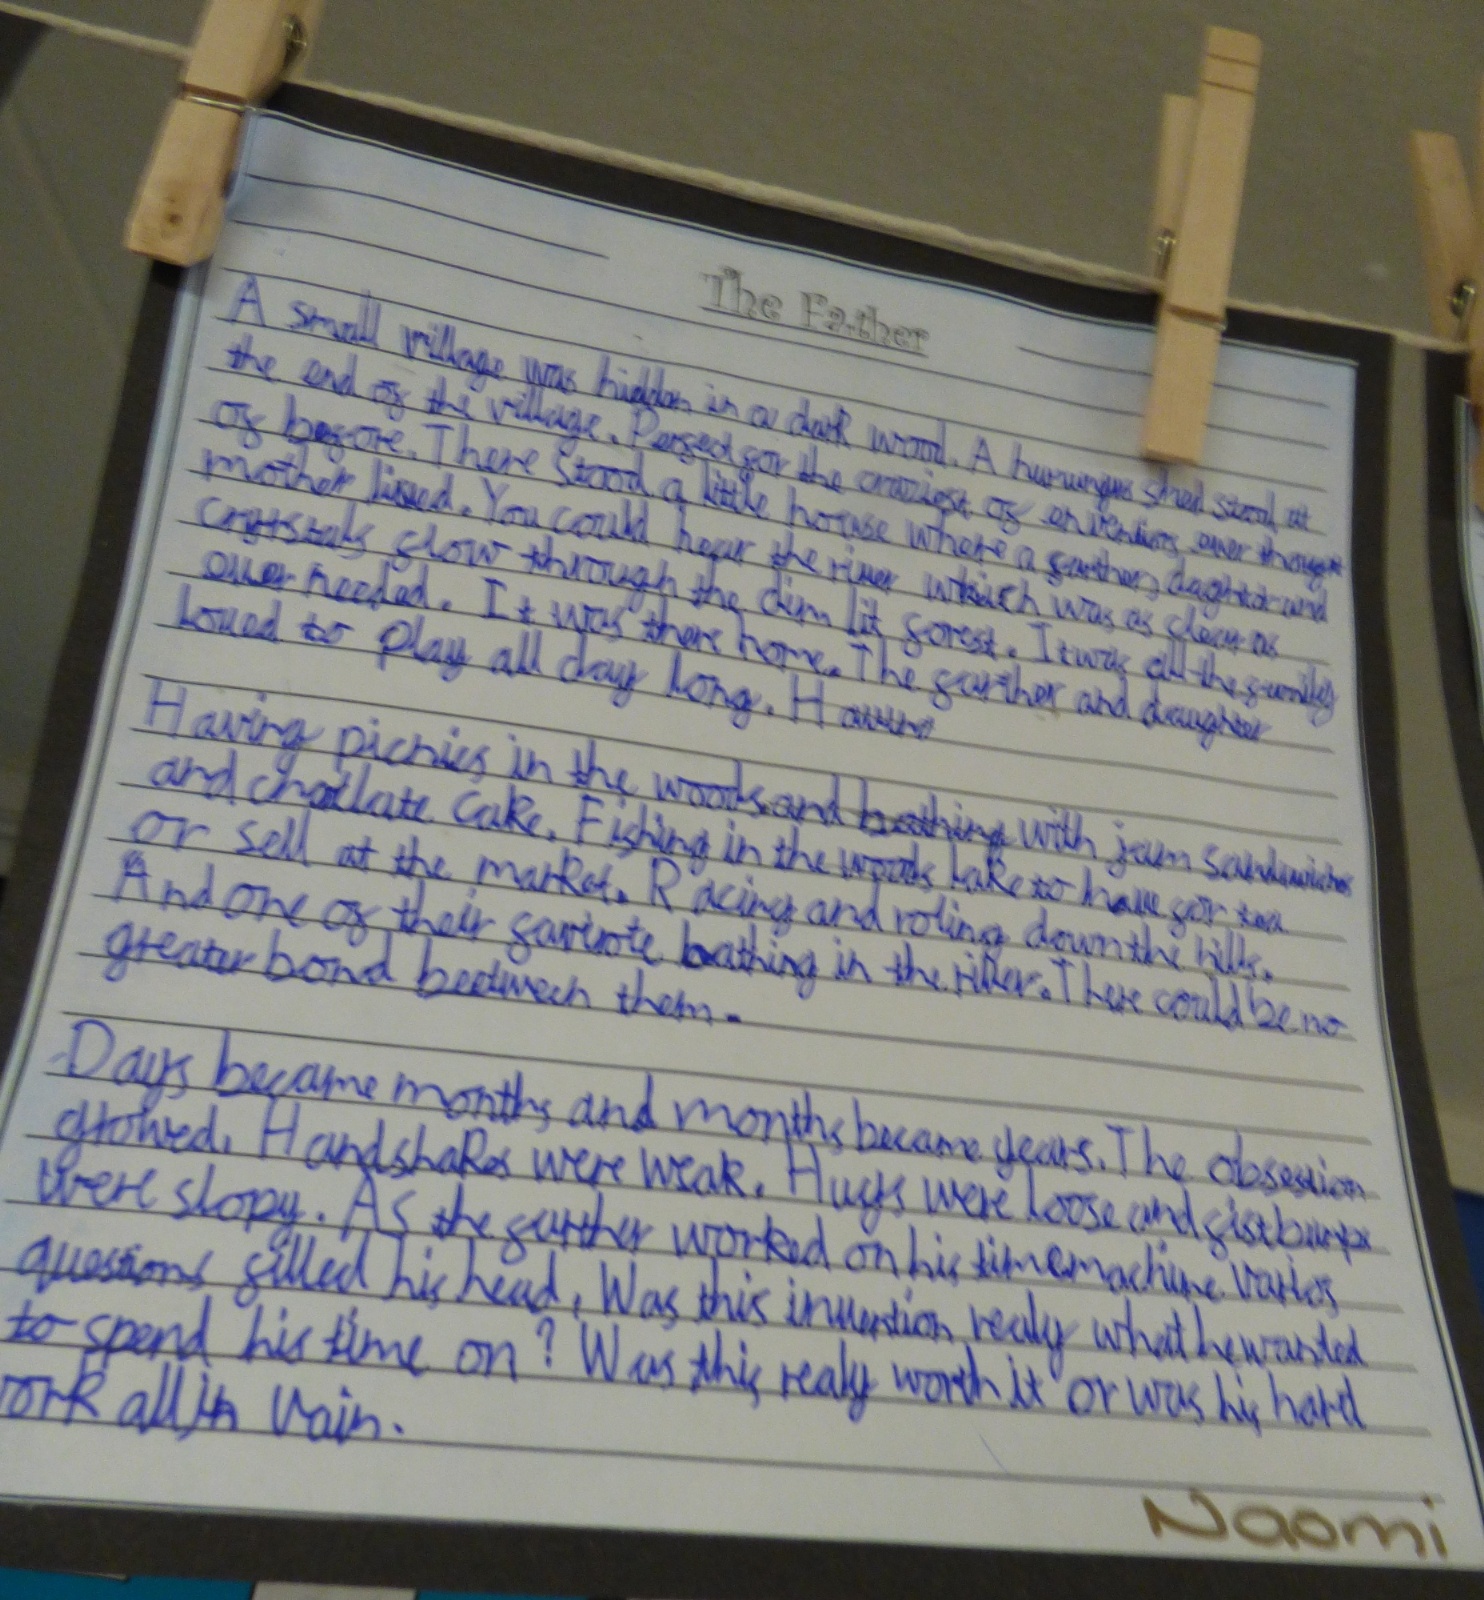 The Father
A small village was hidden in a dark wood. A shed stood at
the end of the village. Perfect for the craziest of enventions ever thought
of before. There stood a little house where a farther, daghter and
mother lived. You could hear the river which was as clear as
crystals flow through the dim lit forest. It was all the family
ever needed. It was there home. The farther and daughter
loved to play all day long. H
Having picnics in the woods and bathing with jam sandwiches
and chocllate cake. Fishing in the woods lake to have for tea
or sell at the market. Racing and roling down the hills.
And one of their favirote bathing in the river. There could be no
greater bond beetween them.
Days became months and months became years. The obsestion
growed. Handshakes were weak. Hugs were loose and fistbumps
were slopy. As the farther worked on his timemachine varios
questions filled his head. Was this invention realy what he wanted
to spend his time on? Was this realy worth it or was his hard
work all in vain.
Naomi